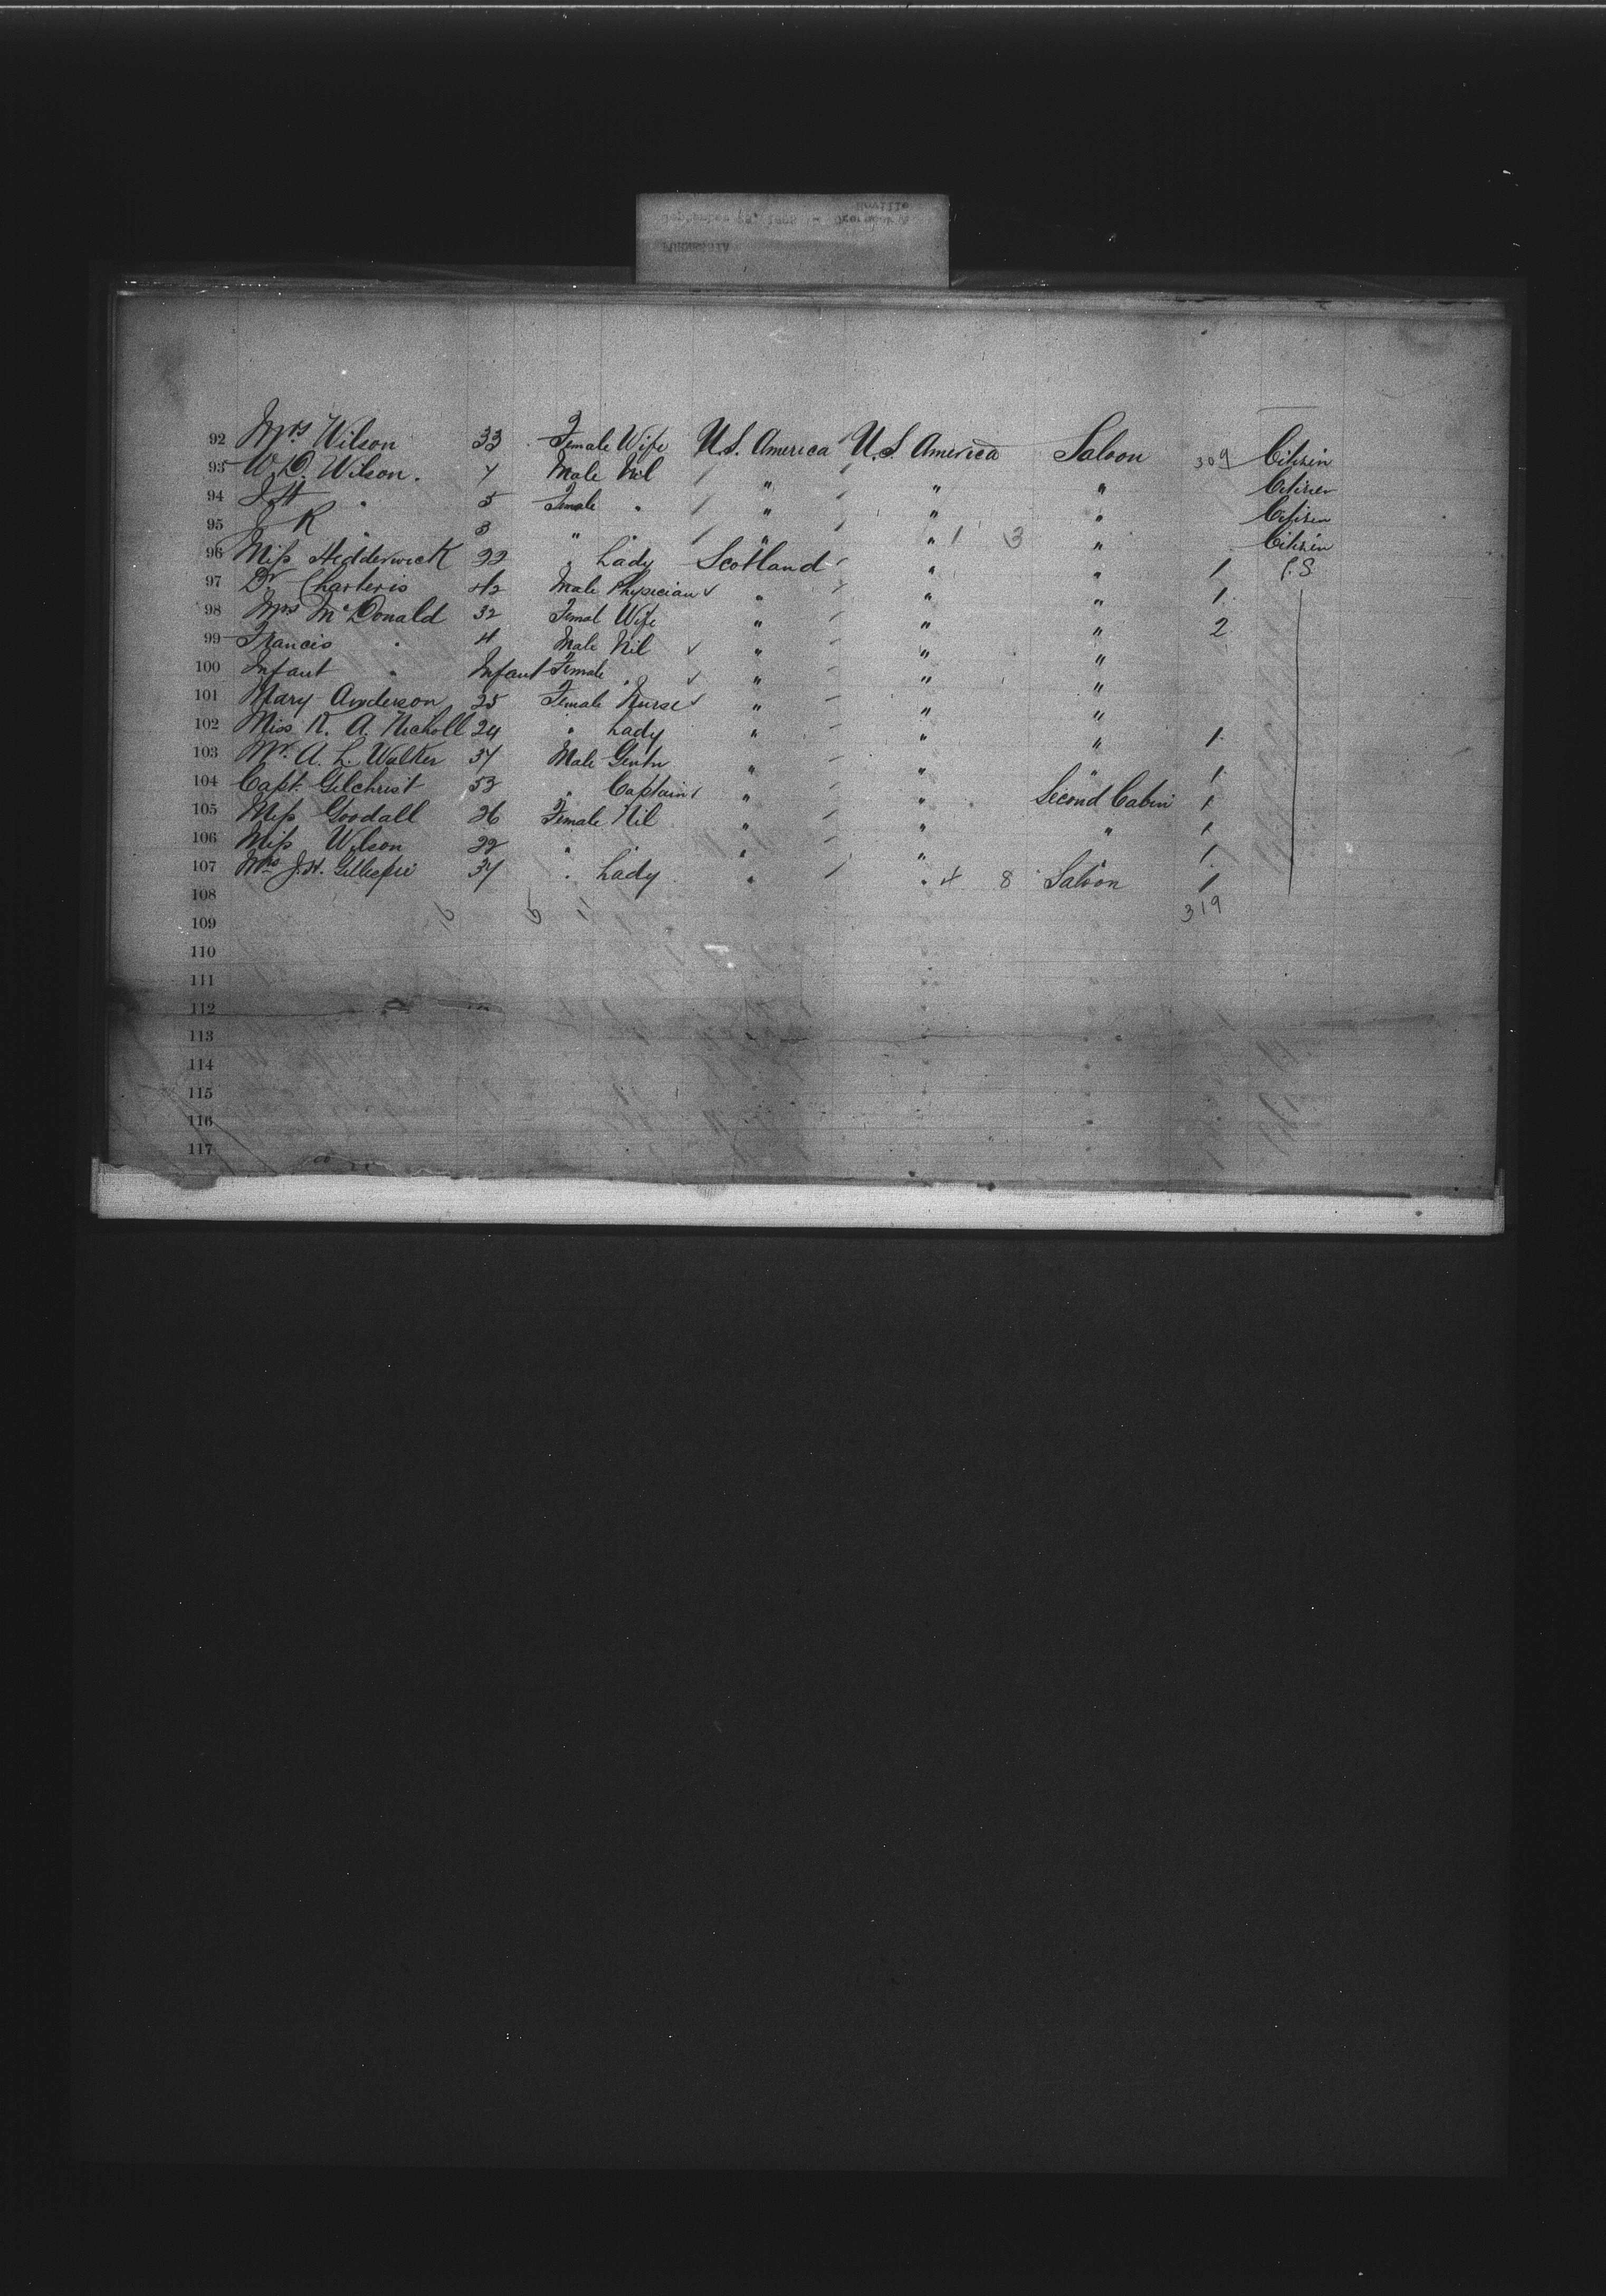 FURNESSIA
92 Mrs Wilson 33 Female Wife U.S. America U.S. America Saloon 309 Citizen
93 W. D. Wilson. 7 Male Nil " " " Citizen
94 J H " 5 Female " " " " Citizen
95 J K " 3 " " " 1 3 " Citizen
96 Miss Hedderwick 22 " Lady Scotland " " 1 C.S.
97 Dr. Charteris 42 Male Physician " " " 1
98 Mrs McDonald 32 Femal Wife " " " 2
99 Francis " 4 Male Nil " " "
100 Infant " Infant Female " " " "
101 Mary Anderson 25 Female Nurse " " "
102 Miss K. A. Nicholl 24 " Lady " " " 1
103 Mr. A. L. Walker 37 Male Gentn " " " 1
104 Capt. Gilchrist 53 " Captain " " Second Cabin 1
105 Miss Goodall 26 Female Nil " " " 1
106 Miss Wilson 22 " " " 1
107 Mrs J. H. Gillespie 37 " Lady " " 4 8 Saloon 1
108 319
109
110
111
112
113
114
115
116
117